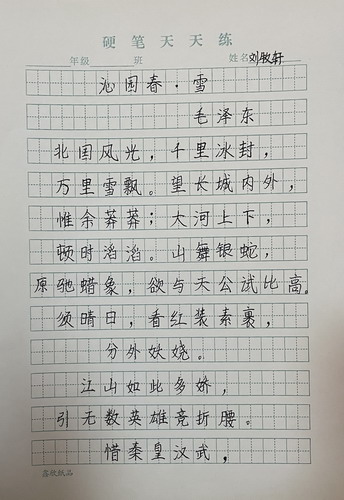 硬笔天天练
年级 班 姓名 刘敏轩
沁园春·雪
毛泽东
北国风光，千里冰封，
万里雪飘。望长城内外，
惟余莽莽；大河上下，
顿时滔滔。山舞银蛇，
原驰蜡象，欲与天公试比高。
须晴日，看红装素裹，
分外妖娆。
江山如此多娇，
引无数英雄竞折腰。
惜秦皇汉武，